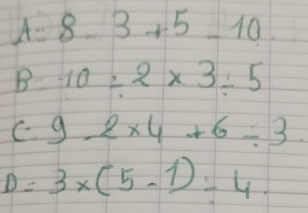 A = 8 - 3 + 5 - 10
B = 10 ÷ 2 × 3 ÷ 5
C = 9 - 2 × 4 + 6 ÷ 3
D = 3 × (5 - 1) ÷ 4.